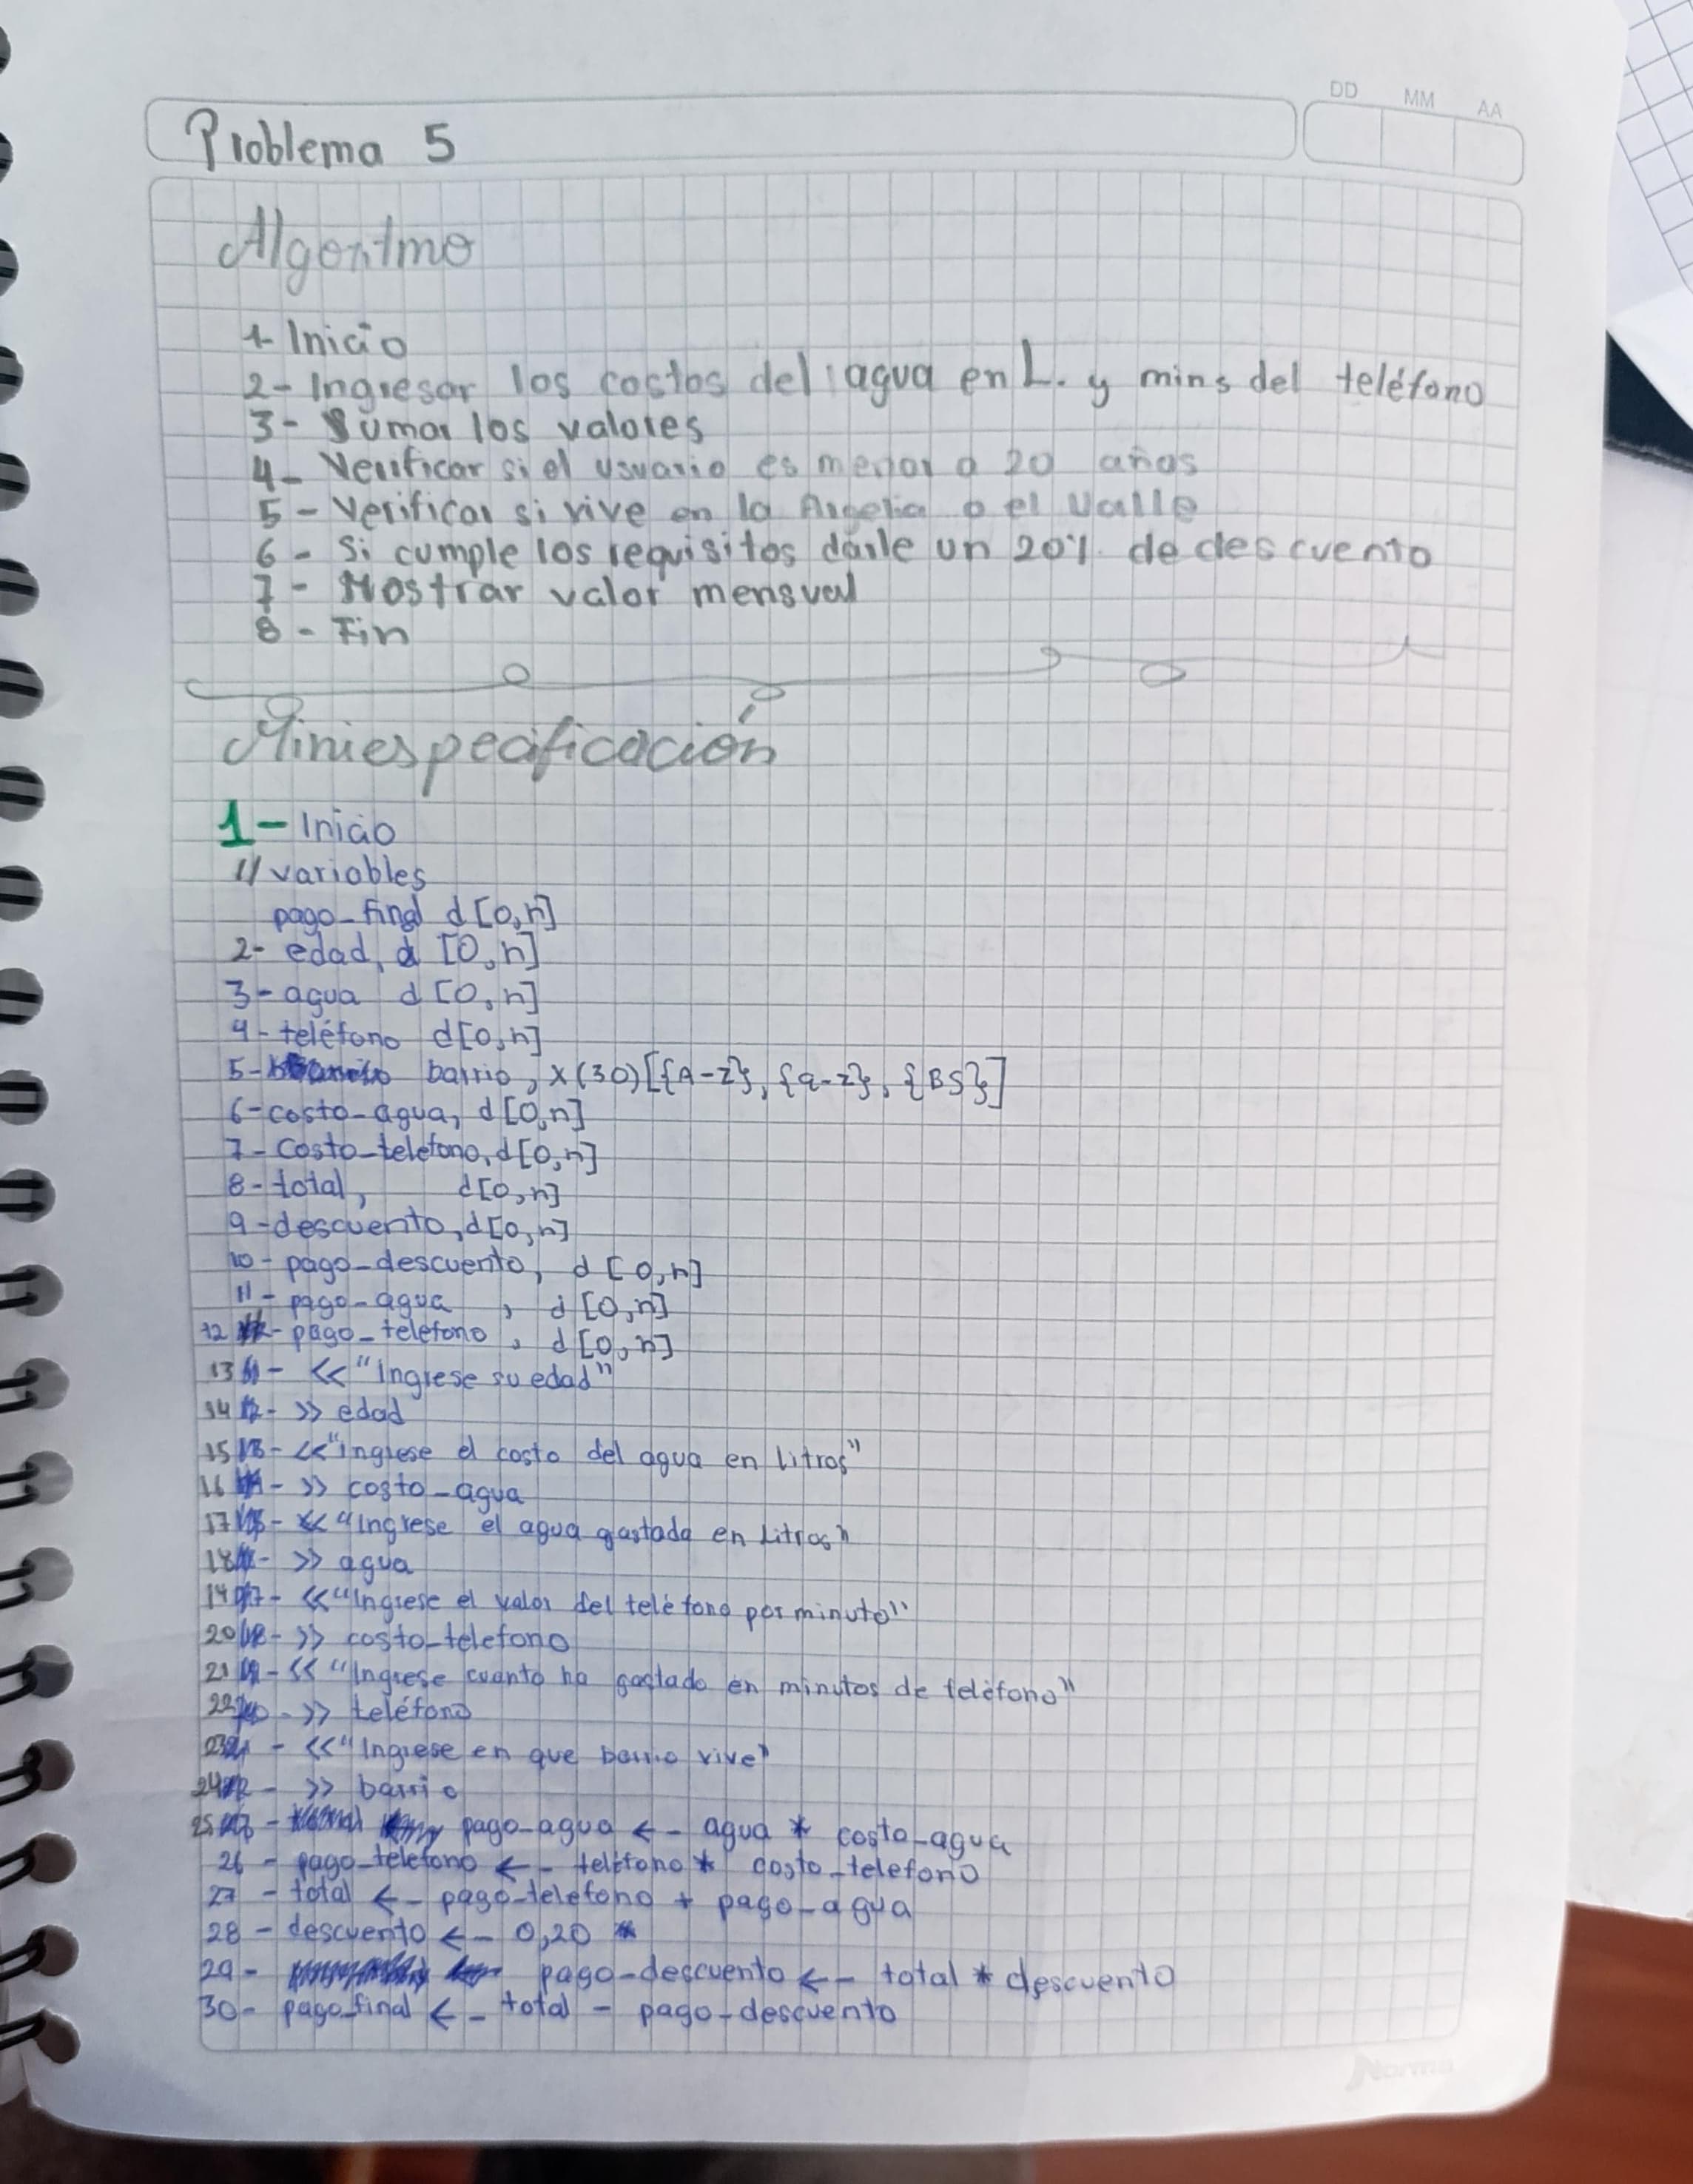 DD MM AA
Problema 5
Algoritmo
1- Inicio
2- Ingresar los costos del agua en L. y mins del teléfono
3- Sumar los valores
4- Verificar si el usuario es menor a 20 años
5- Verificar si vive en la Argelia o el Valle
6- Si cumple los requisitos darle un 20% de descuento
7- Mostrar valor mensual
8- Fin
Miniespecificación
1- Inicio
// variables
pago_final d[0,n]
2- edad, d [0,n]
3- agua d [0,n]
4- teléfono d[0,n]
5- barrio, x(30)[{A-z}, {a-z}, {BS}]
6- costo-agua, d[0,n]
7- Costo_telefono, d[0,n]
8- total, d[0,n]
9- descuento, d[0,n]
10- pago_descuento, d [0,n]
11- pago-agua, d [0,n]
12- pago_telefono, d [0,n]
13- << "Ingrese su edad"
14- >> edad
15- << "ingrese el costo del agua en litros"
16- >> costo_agua
17- << "Ingrese el agua gastada en Litros"
18- >> agua
19- << "Ingrese el valor del teléfono por minuto"
20- >> costo_telefono
21- << "Ingrese cuanto ha gastado en minutos de teléfono"
22- >> teléfono
23- << "Ingrese en que barrio vive"
24- >> barrio
25- pago_agua <- agua * costo_agua
26- pago_telefono <- teléfono * costo_telefono
27- total <- pago_telefono + pago_agua
28- descuento <- 0,20
29- pago-descuento <- total * descuento
30- pago_final <- total - pago-descuento
Norma